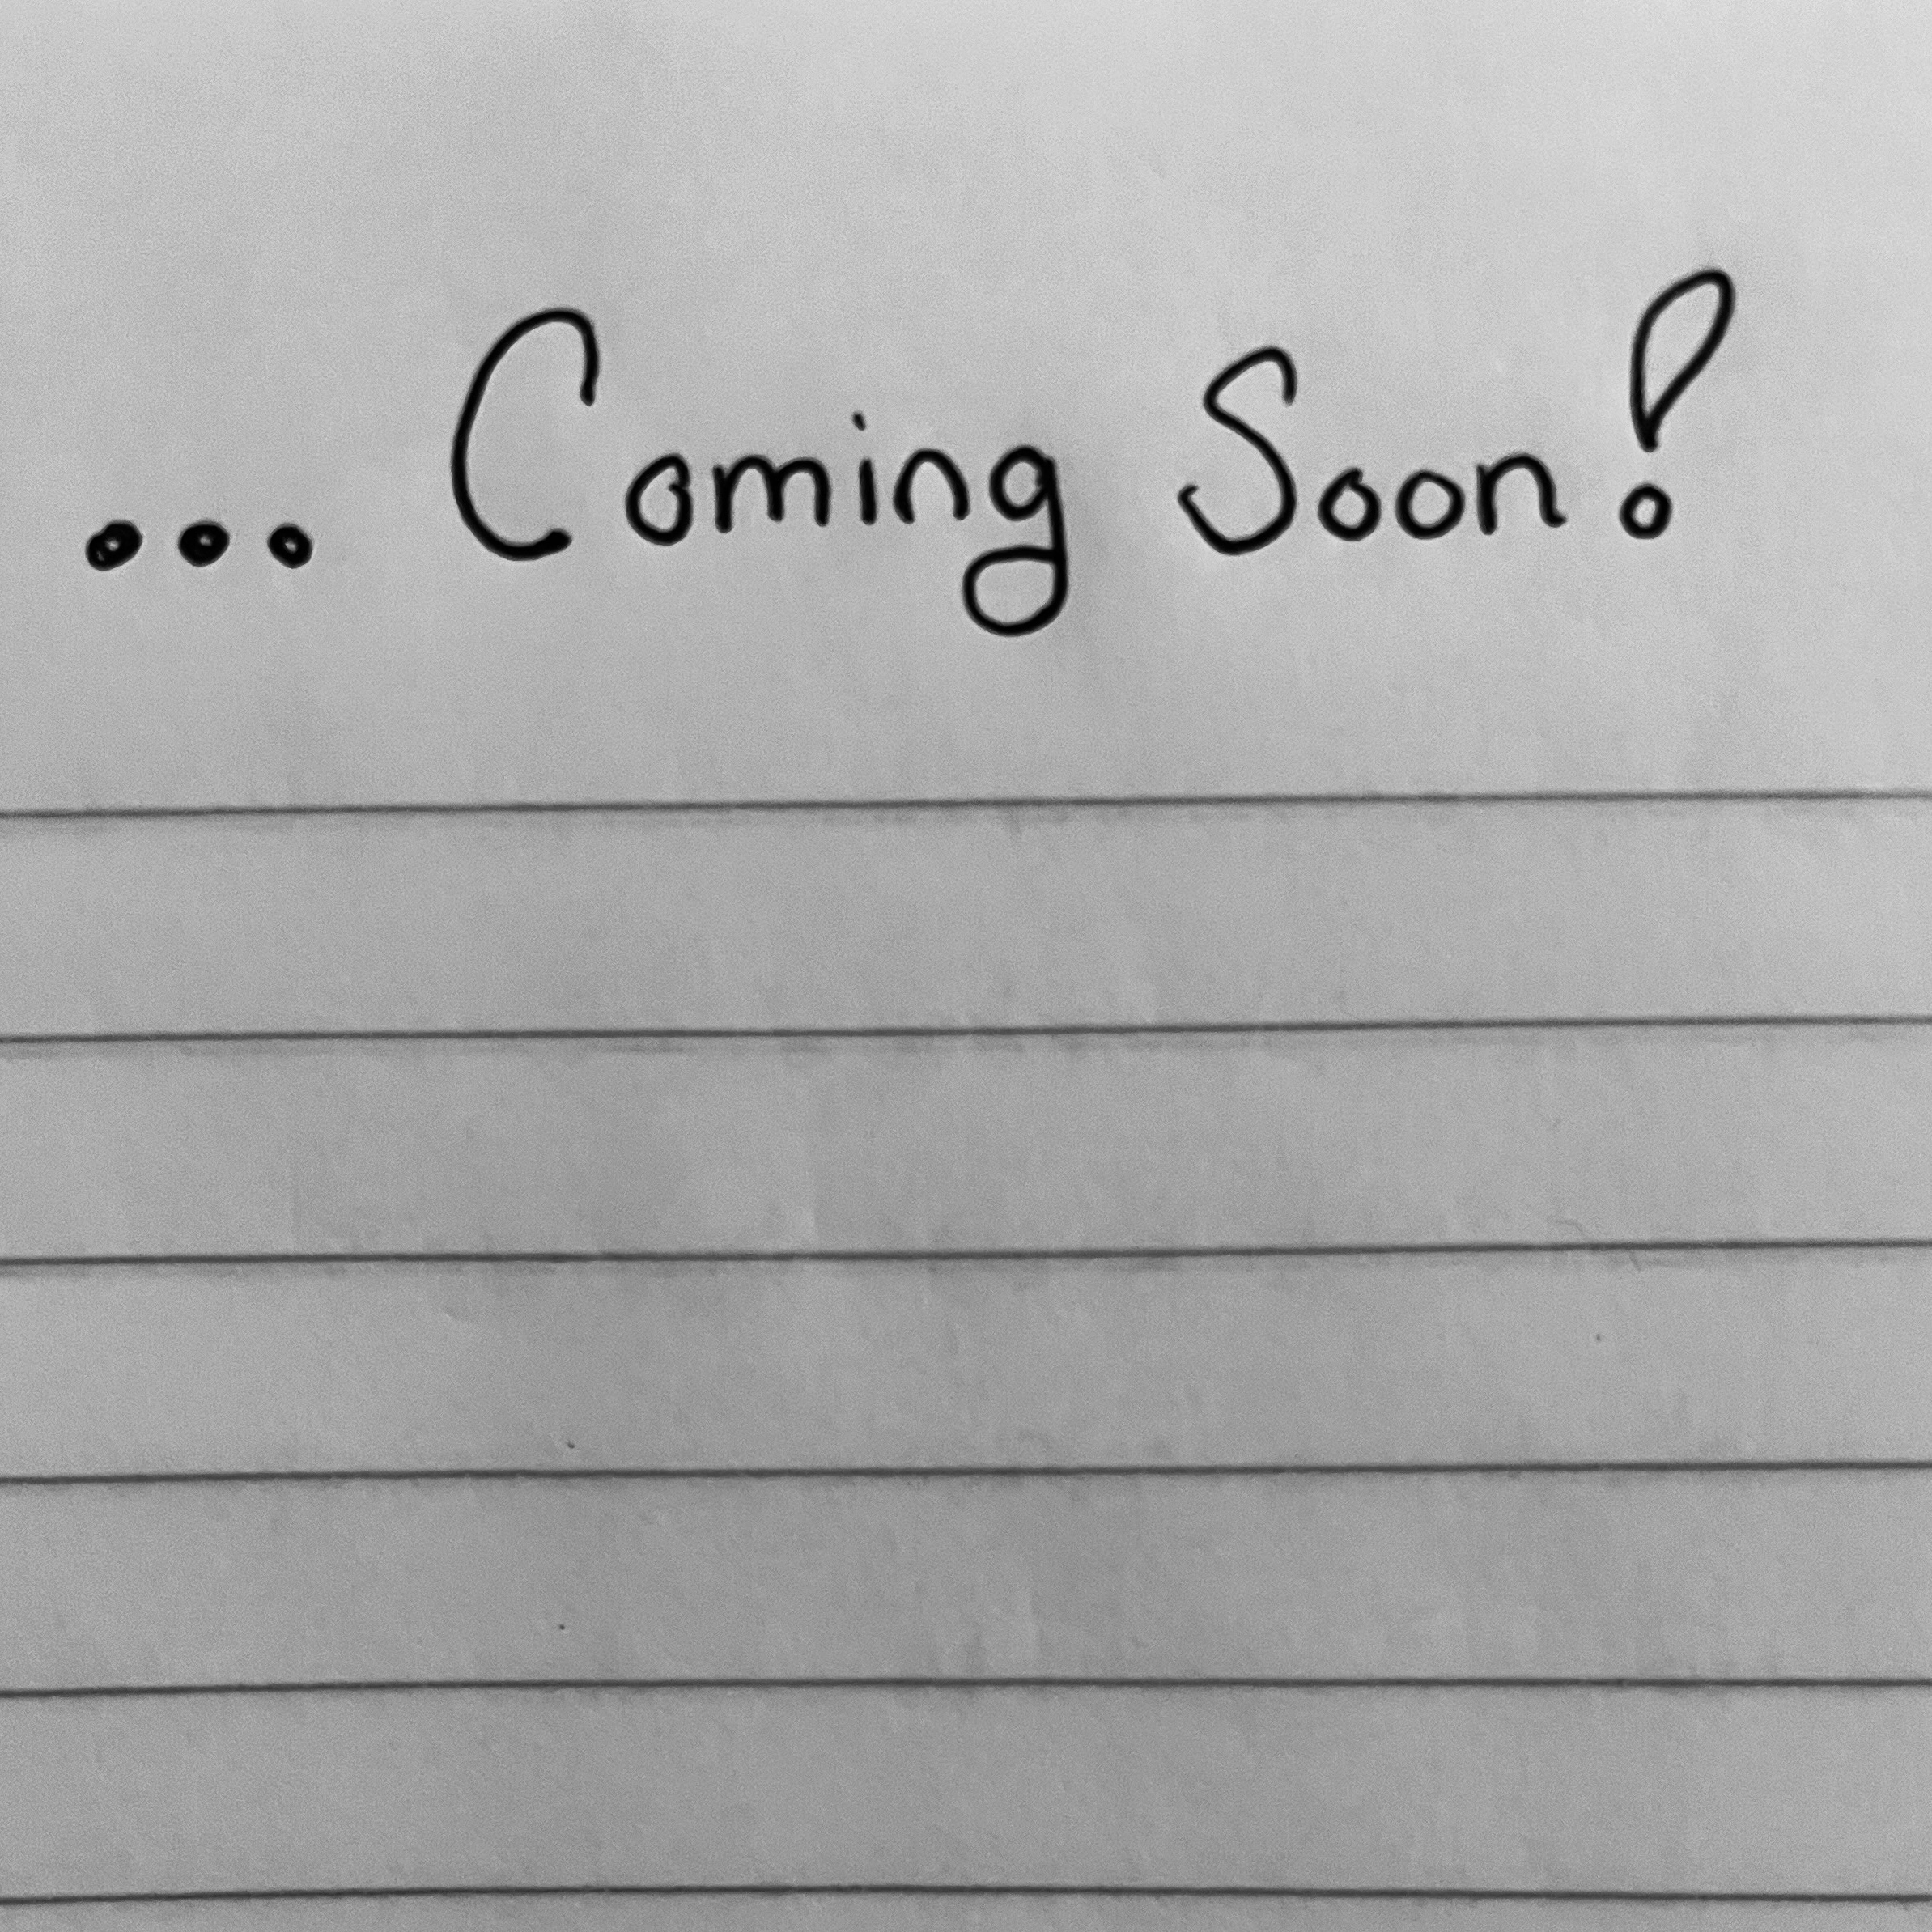 ... Coming Soon!